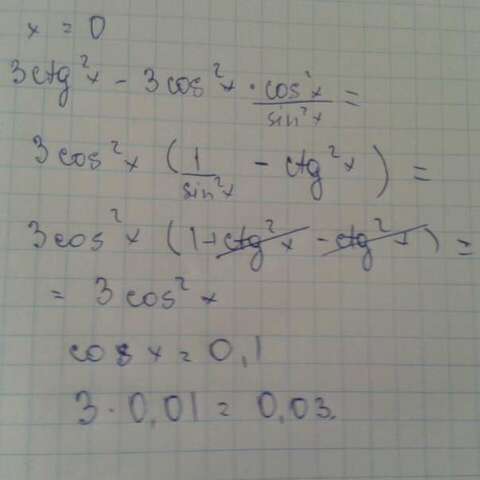 x = 0
3ctg²x - 3cos²x · cos²x/sin²x =
3cos²x (1/sin²x - ctg²x) =
3cos²x (1+ctg²x - ctg²x) =
= 3cos²x
cos x = 0,1
3 · 0,01 = 0,03.